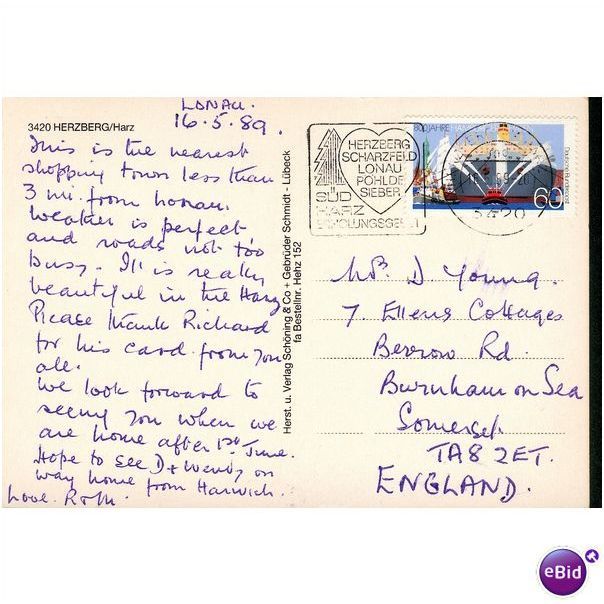 LONAU.
16.5.89.
3420 HERZBERG/Harz
This is the nearest
shopping town less than
3 mi. from Lonau.
Weather is perfect
and roads not too
busy. It is really
beautiful in the Harz
Please thank Richard
for his card from you
all.
We look forward to
seeing you when we
are home after 1st June.
Hope to see D + Wendy on
way home from Harwich.
Love. Ruth.
Herst. u. Verlag Schöning & Co + Gebrüder Schmidt - Lübeck
fa Bestellnr. Hehz 152
HERZBERG
SCHARZFELD
LONAU
PÖHLDE
SIEBER
SÜD
HARZ
ERHOLUNGSGE
800 JAHRE
Deutsche Bundespost
60
3420
D Young.
7. Ellens Cottages
Berrow Rd.
Burnham on Sea
Somerset.
TA8 2ET.
ENGLAND.
eBid